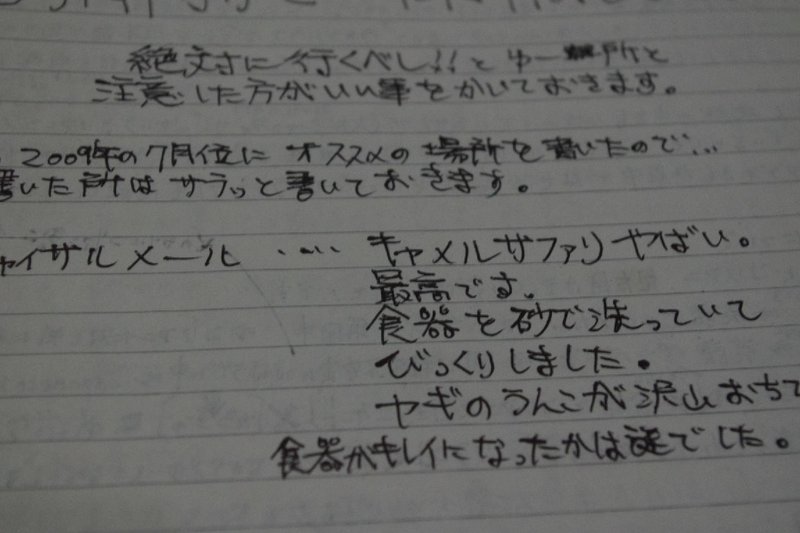 絶対に行くべし!!とゆー場所と
注意した方がいい事をかいておきます。
2009年の7月位にオススメの場所を書いたので...
書いた所はサラッと書いておきます。
ャイサルメール ‥‥ キャメルサファリやばい。
最高です。
食器を砂で洗っていて
びっくりしました。
ヤギのうんこが沢山おちて
食器がキレイになったかは謎でした。